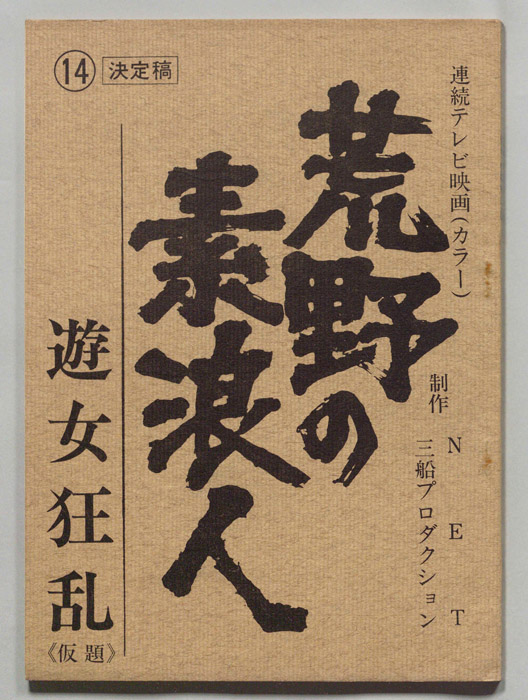 連続テレビ映画(カラー)
制作 NET
三船プロダクション
荒野の
素浪人
⑭ 決定稿
遊女狂乱
《仮題》